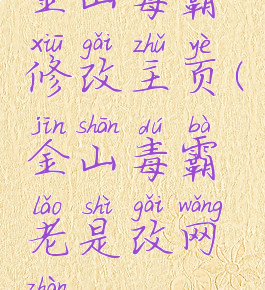 金山毒霸
xiū gǎi zhǔ yè
修改主页(
jīn shān dú bà
金山毒霸
lǎo shì gǎi wǎng
老是改网
zhàn